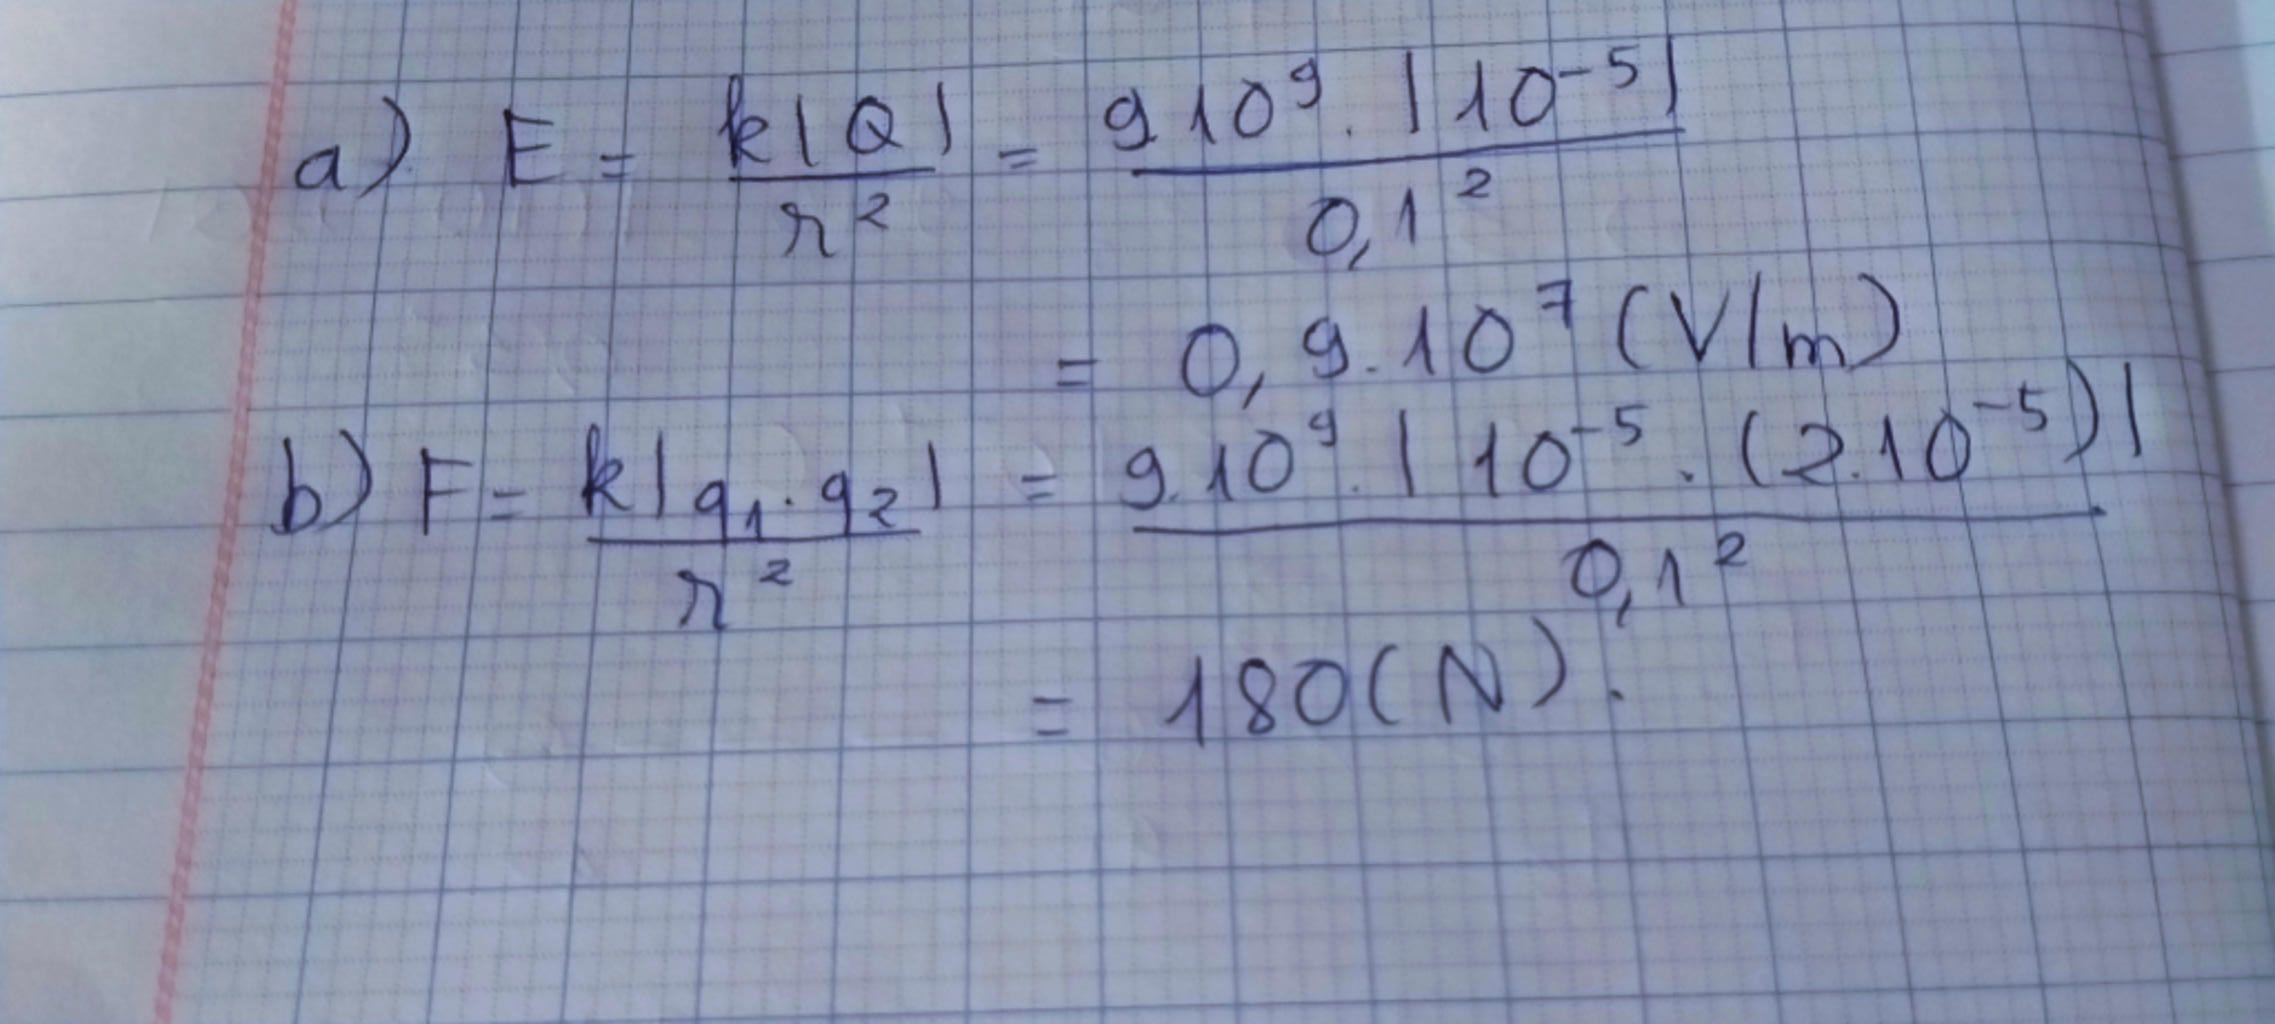 a) E = k|Q| / r² = 9 10⁹ . |10⁻⁵| / 0,1²
= 0,9.10⁷ (V/m)
b) F = k|q₁.q₂| / r² = 9.10⁹ . |10⁻⁵ . (2.10⁻⁵)| / 0,1²
= 180 (N).